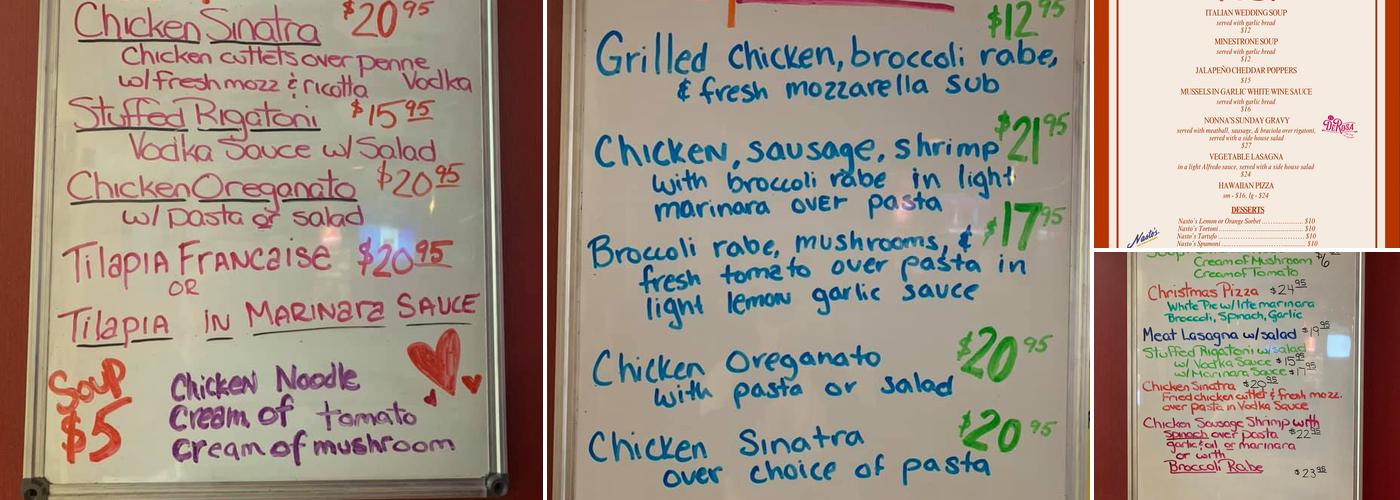 Chicken Sinatra $20 95
Chicken cuttets over penne
w/ fresh mozz & ricotta Vodka
Stuffed Rigatoni $15 95
Vodka Sauce w/ Salad
Chicken Oreganato $20 95
w/ pasta or salad
Tilapia Francaise $20 95
OR
Tilapia in Marinara Sauce
Soup $5
Chicken Noodle
Cream of tomato
Cream of mushroom
$12 95
Grilled Chicken, broccoli rabe,
& fresh mozzarella sub
Chicken, sausage, shrimp $21 95
with broccoli rabe in light
marinara over pasta
Broccoli rabe, mushrooms, & $17 95
fresh tomato over pasta in
light lemon garlic sauce
Chicken Oreganato $20 95
with pasta or salad
Chicken Sinatra $20 95
over choice of pasta
ITALIAN WEDDING SOUP
served with garlic bread
$12
MINESTRONE SOUP
served with garlic bread
$12
JALAPEÑO CHEDDAR POPPERS
$15
MUSSELS IN GARLIC WHITE WINE SAUCE
served with garlic bread
$16
NONNA'S SUNDAY GRAVY
served with meatball, sausage, & braciola over rigatoni,
served with a side house salad
$27
DeRosa
VEGETABLE LASAGNA
in a light Alfredo sauce, served with a side house salad
$24
HAWAIIAN PIZZA
sm - $16, lg - $24
DESSERTS
Nasto's Lemon or Orange Sorbet $10
Nasto's Tortoni $10
Nasto's Tartufo $10
Nasto's Spumoni $10
Nasto's
Cream of Mushroom $6
Cream of Tomato
Christmas Pizza $24 95
White Pie w/ lite marinara
Broccoli, Spinach, Garlic
Meat Lasagna w/ salad $19 95
Stuffed Rigatoni w/ salad
w/ Vodka Sauce $15 95
w/ Marinara Sauce $17
Chicken Sinatra $20 95
Fried chicken cutlet & fresh mozz.
over pasta in Vodka Sauce
Chicken Sausage Shrimp with
Spinach over pasta $22 95
garlic & oil or marinara
or with
Broccoli Rabe $23 95